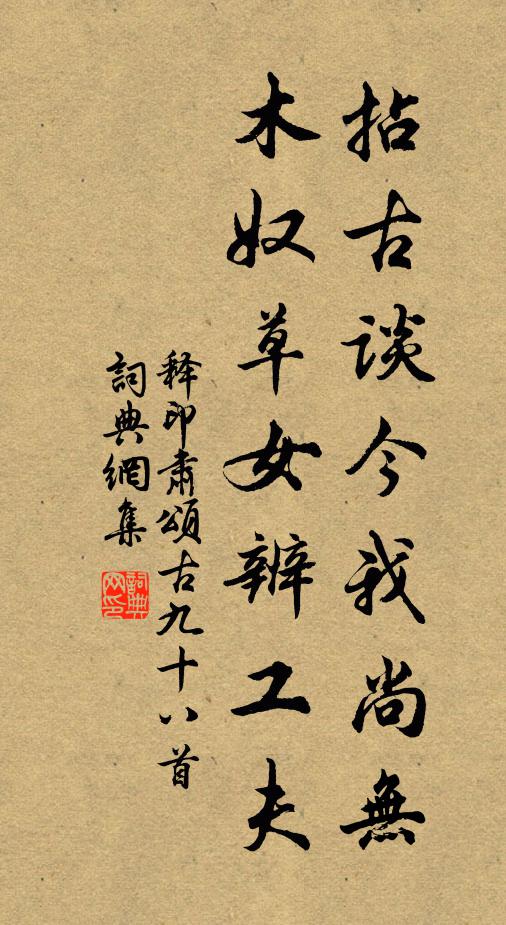 拈古談今我尚無
木奴草女辨工夫
释印肃頌古九十八首
詞典網集
詞典网印